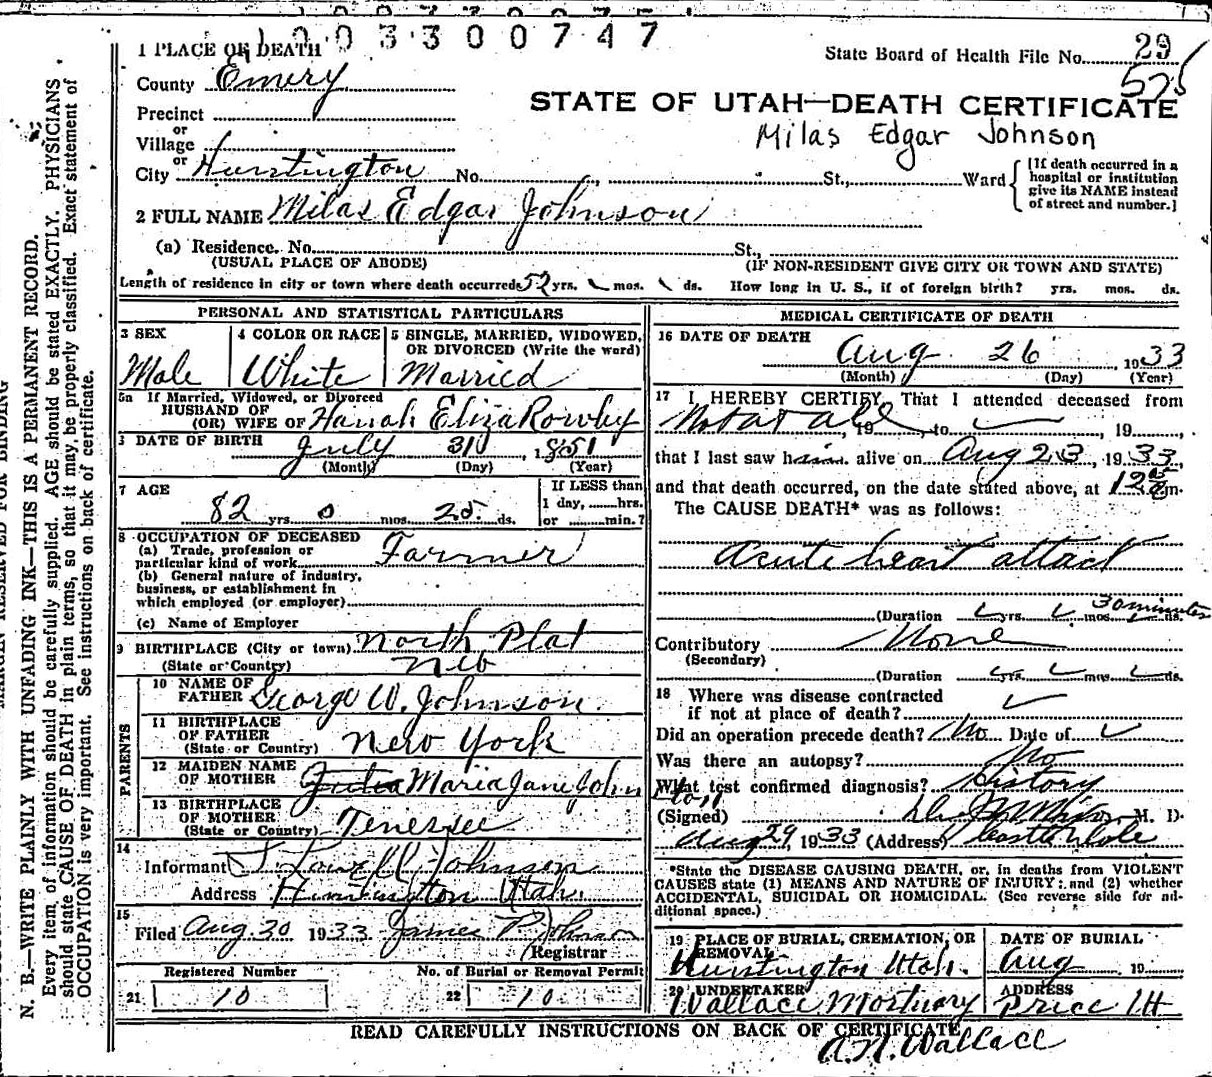 0 0 3 3 0 0 7 4 7
1 PLACE OF DEATH
State Board of Health File No. 29
575
County Emery
STATE OF UTAH—DEATH CERTIFICATE
Milas Edgar Johnson
Precinct
or
Village
or
City Huntington No. St., Ward
[If death occurred in a hospital or institution give its NAME instead of street and number.]
2 FULL NAME Milas Edgar Johnson
(a) Residence. No. St.,
(USUAL PLACE OF ABODE) (IF NON-RESIDENT GIVE CITY OR TOWN AND STATE)
Length of residence in city or town where death occurred 52 yrs. mos. ds. How long in U. S., if of foreign birth? yrs. mos. ds.
PERSONAL AND STATISTICAL PARTICULARS
3 SEX
Male
4 COLOR OR RACE
White
5 SINGLE, MARRIED, WIDOWED, OR DIVORCED (Write the word)
Married
5a If Married, Widowed, or Divorced
HUSBAND OF
(OR) WIFE OF Hanah Eliza Rowley
DATE OF BIRTH July 31, 1851
(Month) (Day) (Year)
7 AGE
82 yrs 0 mos. 25 ds.
If LESS than
1 day, hrs.
or min.?
8 OCCUPATION OF DECEASED
(a) Trade, profession or
particular kind of work Farmer
(b) General nature of industry,
business, or establishment in
which employed (or employer)
(c) Name of Employer
9 BIRTHPLACE (City or town) North Plat
(State or Country) Neb
PARENTS
10 NAME OF
FATHER George W. Johnson
11 BIRTHPLACE
OF FATHER
(State or Country) New York
12 MAIDEN NAME
OF MOTHER Maria Jane John
ston
13 BIRTHPLACE
OF MOTHER
(State or Country) Tenessee
14
Informant J. Lowell Johnson
Address Huntington Utah.
15
Filed Aug. 30 1933 James P. Johnson
Registrar
Registered Number No. of Burial or Removal Permit
21 10 22 10
MEDICAL CERTIFICATE OF DEATH
16 DATE OF DEATH
Aug 26, 1933
(Month) (Day) (Year)
17 I HEREBY CERTIFY, That I attended deceased from
Not at all, 19 , to , 19 ,
that I last saw him alive on Aug 23, 1933,
and that death occurred, on the date stated above, at m.
The CAUSE DEATH* was as follows:
Acute heart attact
30 minutes
(Duration yrs. mos. ds.
Contributory None
(Secondary)
(Duration yrs. mos. ds.
18 Where was disease contracted
if not at place of death?
Did an operation precede death? No Date of
Was there an autopsy? No
What test confirmed diagnosis? History
(Signed) M. D.
Aug 29, 1933 (Address) Castle Dale
*State the DISEASE CAUSING DEATH, or, in deaths from VIOLENT
CAUSES state (1) MEANS AND NATURE OF INJURY; and (2) whether
ACCIDENTAL, SUICIDAL OR HOMICIDAL. (See reverse side for ad-
ditional space.)
19 PLACE OF BURIAL, CREMATION, OR
REMOVAL
Huntington Utah.
DATE OF BURIAL
Aug 19
20 UNDERTAKER
Wallace Mortuary
ADDRESS
Price Ut
READ CAREFULLY INSTRUCTIONS ON BACK OF CERTIFICATE
A. N. Wallace
MARGIN RESERVED FOR BINDING
N. B.—WRITE PLAINLY WITH UNFADING INK—THIS IS A PERMANENT RECORD.
Every item of information should be carefully supplied. AGE should be stated EXACTLY. PHYSICIANS
should state CAUSE OF DEATH in plain terms, so that it may be properly classified. Exact statement of
OCCUPATION is very important. See instructions on back of certificate.